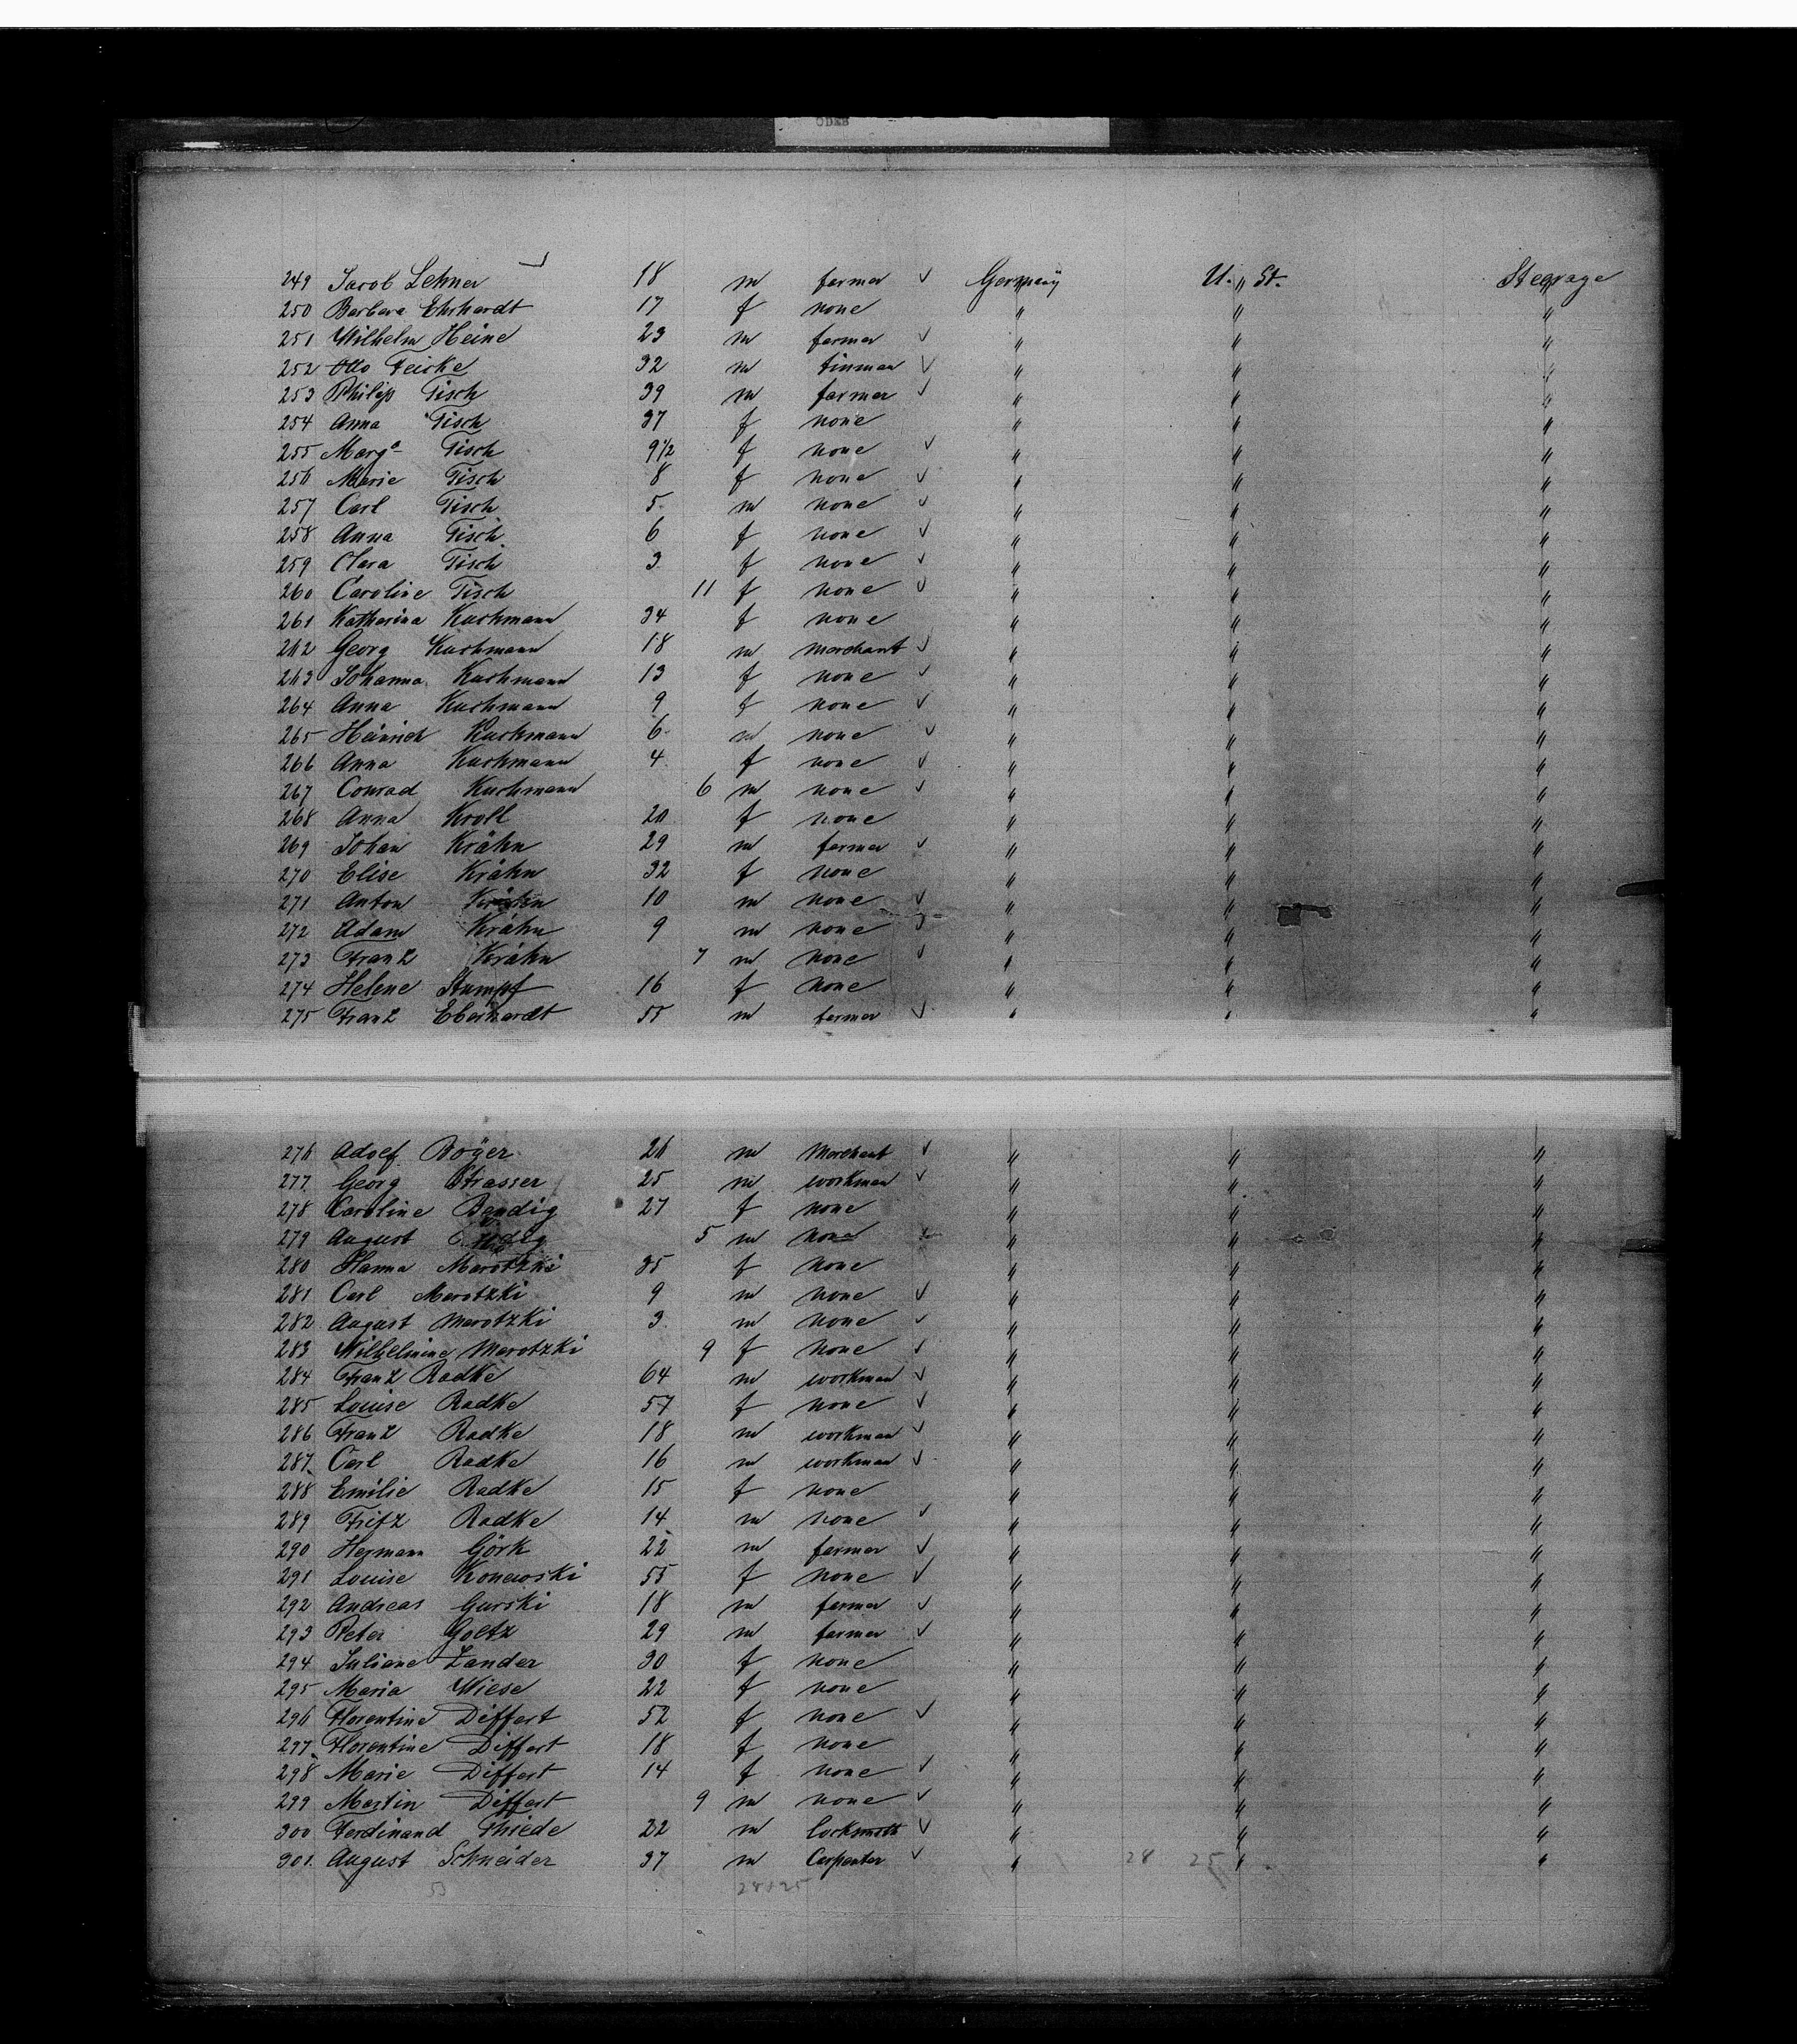 249 Jacob Lehner 18 m farmer ✓ Germany U. St. Steerage
250 Barbara Ehrhardt 17 f none " " "
251 Wilhelm Heine 23 m farmer ✓ " " "
252 Otto Feicke 32 m tinman ✓ " " "
253 Philip Tisch 39 m farmer ✓ " " "
254 Anna Tisch 37 f none " " "
255 Marg.a Tisch 9 1/2 f none ✓ " " "
256 Marie Tisch 8 f none ✓ " " "
257 Carl Tisch 5 m none ✓ " " "
258 Anna Tisch 6 f none ✓ " " "
259 Clara Tisch 3 f none ✓ " " "
260 Caroline Tisch 11 f none ✓ " " "
261 Katharina Kuchmann 34 f none " " "
262 Georg Kuchmann 18 m merchant ✓ " " "
263 Johanna Kuchmann 13 f none ✓ " " "
264 Anna Kuchmann 9 f none ✓ " " "
265 Heinrich Kuchmann 6 m none ✓ " " "
266 Anna Kuchmann 4 f none ✓ " " "
267 Conrad Kuchmann 6 m none ✓ " " "
268 Anna Kroll 20 f none " " "
269 Johan Krähn 29 m farmer ✓ " " "
270 Elise Krähn 32 f none " " "
271 Anton Krähn 10 m none ✓ " " "
272 Adam Krähn 9 m none ✓ " " "
273 Franz Krähn 7 m none ✓ " " "
274 Helene Stumpf 16 f none " " "
275 Franz Eberhardt 55 m farmer ✓ " " "
276 Adolf Böyer 26 m merchant ✓ " " "
277 Georg Strasser 25 m workman ✓ " " "
278 Caroline Bendig 27 f none " " "
279 August 5 m none " " "
280 Hanna Marotzki 35 f none " " "
281 Carl Marotzki 9 m none ✓ " " "
282 August Marotzki 3 m none ✓ " " "
283 Wilhelmine Marotzki 9 f none ✓ " " "
284 Franz Radke 64 m workman ✓ " " "
285 Louise Radke 57 f none ✓ " " "
286 Franz Radke 18 m workman ✓ " " "
287 Carl Radke 16 m workman ✓ " " "
288 Emilie Radke 15 f none " " "
289 Fritz Radke 14 m none ✓ " " "
290 Hermann Görk 22 m farmer ✓ " " "
291 Louise Konewski 55 f none ✓ " " "
292 Andreas Gurski 18 m farmer ✓ " " "
293 Peter Goltz 29 m farmer ✓ " " "
294 Juliane Zander 30 f none " " "
295 Maria Wiese 22 f none " " "
296 Florentine Differt 52 f none ✓ " " "
297 Florentine Differt 18 f none " " "
298 Marie Differt 14 f none ✓ " " "
299 Martin Differt 9 m none ✓ " " "
300 Ferdinand Thiede 22 m locksmith ✓ " " "
301 August Schneider 37 m Carpenter ✓ " 28 25 " "
53 28+25